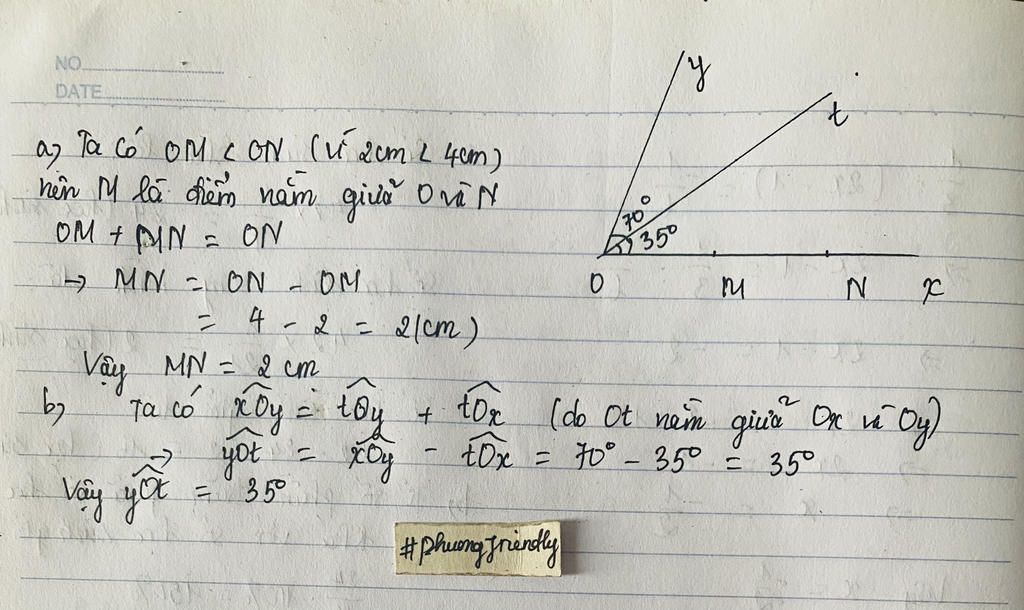 NO
DATE
a) Ta có OM < ON (vì 2cm < 4cm)
nên M là điểm nằm giữa O và N
OM + MN = ON
→ MN = ON - OM
= 4 - 2 = 2(cm)
Vậy MN = 2 cm
b) Ta có xOy = tOy + tOx (do Ot nằm giữa Ox và Oy)
→ yOt = xOy - tOx = 70° - 35° = 35°
Vậy yOt = 35°
y
t
70°
35°
O M N x
#phuongfriendly